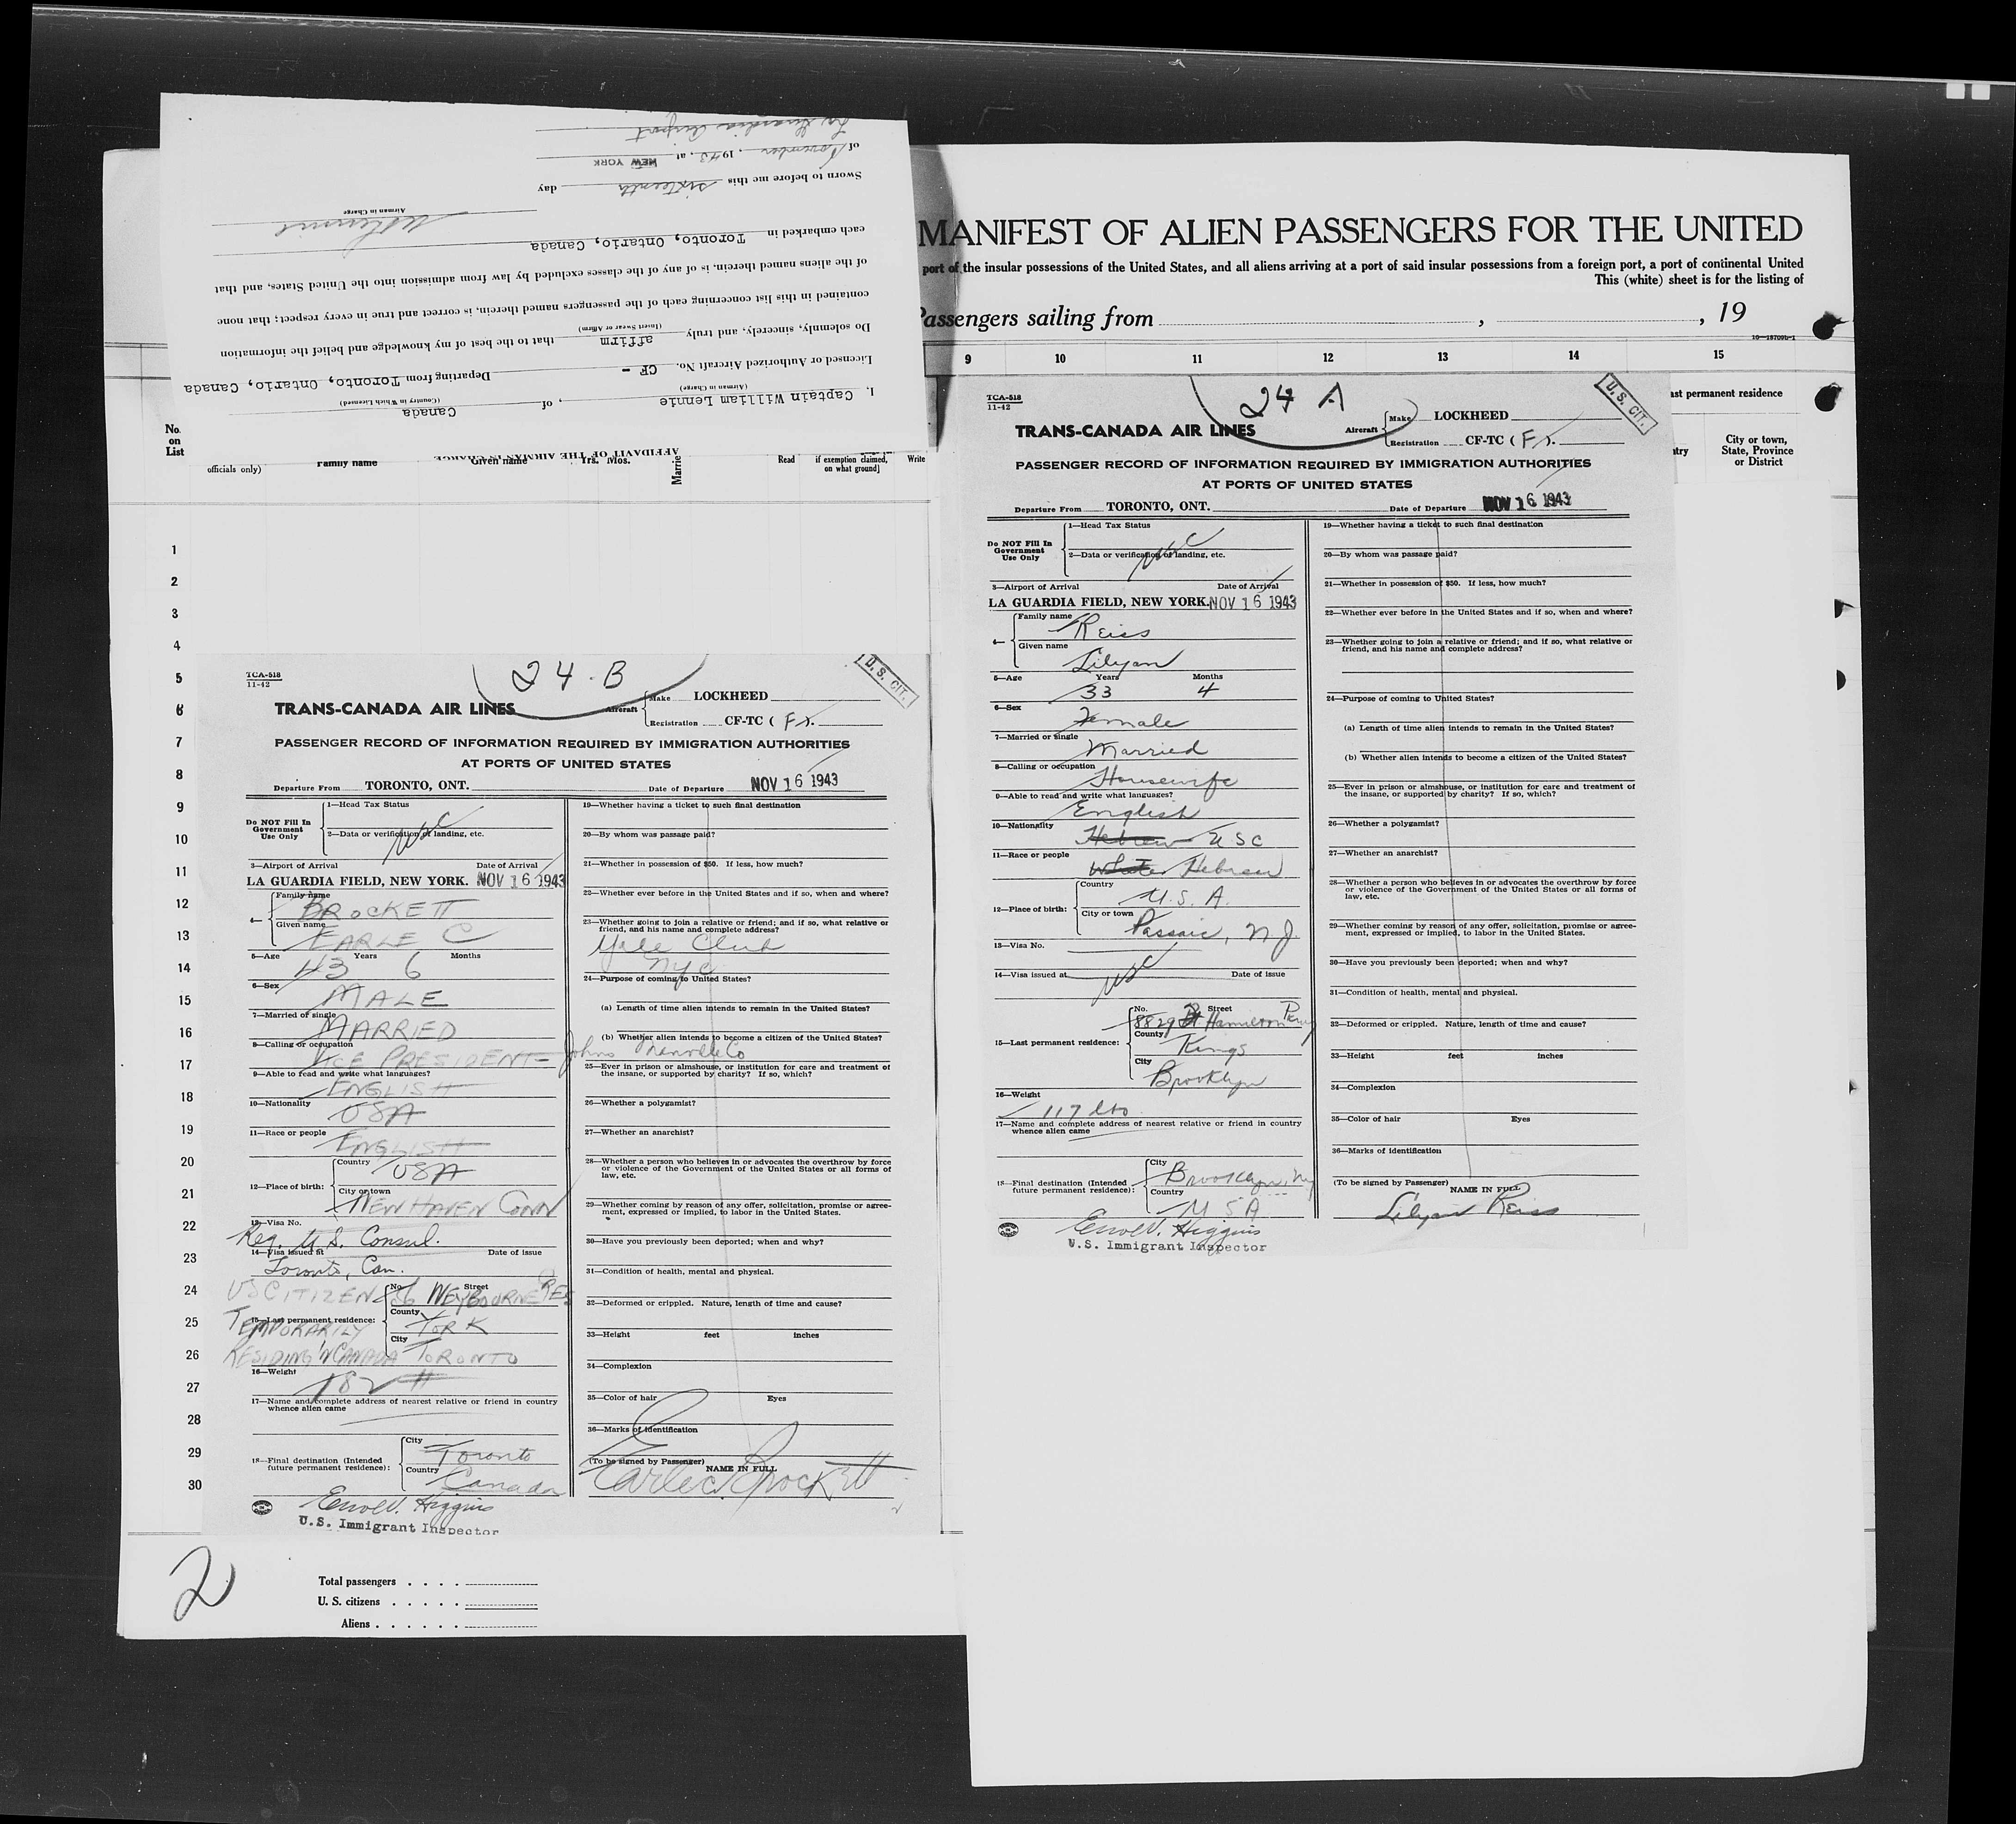 AFFIDAVIT OF THE AIRMAN IN CHARGE
I, Captain William Lennie, of Canada
(Airman in Charge) (Country in Which Licensed)
Licensed or Authorized Aircraft No. CF - Departing from Toronto, Ontario, Canada
Do solemnly, sincerely, and truly affirm that to the best of my knowledge and belief the information
(Insert Swear or Affirm)
contained in this list concerning each of the passengers named therein, is correct and true in every respect; that none
of the aliens named therein, is of any of the classes excluded by law from admission into the United States, and that
each embarked in Toronto, Ontario, Canada
Airman in Charge
Sworn to before me this sixteenth day
of November, 1943, at NEW YORK
La Guardia Airport
MANIFEST OF ALIEN PASSENGERS FOR THE UNITED
port of the insular possessions of the United States, and all aliens arriving at a port of said insular possessions from a foreign port, a port of continental United
This (white) sheet is for the listing of
Passengers sailing from , , 19
16—18709b-1
9 10 11 12 13 14 15
ast permanent residence
City or town,
State, Province
or District
No.
on
List
officials only)
Family name
Given name
Yrs. Mos.
Read
if exemption claimed,
on what ground]
Write
1
2
3
4
5
6
7
8
9
10
11
12
13
14
15
16
17
18
19
20
21
22
23
24
25
26
27
28
29
30
TCA-518
11-42
24 B
U. S. CIT.
TRANS-CANADA AIR LINES
Aircraft
Make LOCKHEED
Registration CF-TC ( F ).
PASSENGER RECORD OF INFORMATION REQUIRED BY IMMIGRATION AUTHORITIES
AT PORTS OF UNITED STATES
Departure From TORONTO, ONT. Date of Departure NOV 16 1943
Do NOT Fill In
Government
Use Only
1—Head Tax Status
2—Data or verification of landing, etc.
USC
3—Airport of Arrival Date of Arrival
LA GUARDIA FIELD, NEW YORK. NOV 16 1943
4—
Family name
BROCKETT
Given name
EARLE C
5—Age 43 Years 6 Months
6—Sex
MALE
7—Married or single
MARRIED
8—Calling or occupation
VICE PRESIDENT - Johns Manville Co
9—Able to read and write what languages?
ENGLISH
10—Nationality
USA
11—Race or people
ENGLISH
12—Place of birth:
Country
USA
City or town
NEW HAVEN CONN
13—Visa No.
Reg. U.S. Consul.
14—Visa issued at Date of issue
Toronto, Can.
US CITIZEN
TEMPORARILY
RESIDING IN CANADA
15—Last permanent residence:
No. Street
WEYBOURNE CRES
County
YORK
City
TORONTO
16—Weight
182 #
17—Name and complete address of nearest relative or friend in country
whence alien came
18—Final destination (Intended
future permanent residence):
City
Toronto
Country
Canada
Errol V. Higgins
U.S. Immigrant Inspector
19—Whether having a ticket to such final destination
20—By whom was passage paid?
21—Whether in possession of $50. If less, how much?
22—Whether ever before in the United States and if so, when and where?
23—Whether going to join a relative or friend; and if so, what relative or
friend, and his name and complete address?
Yale Club
NYC
24—Purpose of coming to United States?
(a) Length of time alien intends to remain in the United States?
(b) Whether alien intends to become a citizen of the United States?
25—Ever in prison or almshouse, or institution for care and treatment of
the insane, or supported by charity? If so, which?
26—Whether a polygamist?
27—Whether an anarchist?
28—Whether a person who believes in or advocates the overthrow by force
or violence of the Government of the United States or all forms of
law, etc.
29—Whether coming by reason of any offer, solicitation, promise or agree-
ment, expressed or implied, to labor in the United States.
30—Have you previously been deported; when and why?
31—Condition of health, mental and physical.
32—Deformed or crippled. Nature, length of time and cause?
33—Height feet inches
34—Complexion
35—Color of hair Eyes
36—Marks of identification
(To be signed by Passenger) NAME IN FULL
Earle C Brockett
2
Total passengers
U. S. citizens
Aliens
TCA-518
11-42
24 A
U. S. CIT.
TRANS-CANADA AIR LINES
Aircraft
Make LOCKHEED
Registration CF-TC ( F ).
PASSENGER RECORD OF INFORMATION REQUIRED BY IMMIGRATION AUTHORITIES
AT PORTS OF UNITED STATES
Departure From TORONTO, ONT. Date of Departure NOV 16 1943
Do NOT Fill In
Government
Use Only
1—Head Tax Status
2—Data or verification of landing, etc.
USC
3—Airport of Arrival Date of Arrival
LA GUARDIA FIELD, NEW YORK. NOV 16 1943
4—
Family name
Reiss
Given name
Lilyan
5—Age Years Months
33 4
6—Sex
Female
7—Married or single
Married
8—Calling or occupation
Housewife
9—Able to read and write what languages?
English
10—Nationality
Hebrew USC
11—Race or people
White Hebrew
12—Place of birth:
Country
U.S.A.
City or town
Passaic, NJ
13—Visa No.
14—Visa issued at Date of issue
USC
15—Last permanent residence:
No. Street
8829 Ft Hamilton Pkwy
County
Kings
City
Brooklyn
16—Weight
117 lbs
17—Name and complete address of nearest relative or friend in country
whence alien came
18—Final destination (Intended
future permanent residence):
City
Brooklyn, NY
Country
USA
Errol V. Higgins
U.S. Immigrant Inspector
19—Whether having a ticket to such final destination
20—By whom was passage paid?
21—Whether in possession of $50. If less, how much?
22—Whether ever before in the United States and if so, when and where?
23—Whether going to join a relative or friend; and if so, what relative or
friend, and his name and complete address?
24—Purpose of coming to United States?
(a) Length of time alien intends to remain in the United States?
(b) Whether alien intends to become a citizen of the United States?
25—Ever in prison or almshouse, or institution for care and treatment of
the insane, or supported by charity? If so, which?
26—Whether a polygamist?
27—Whether an anarchist?
28—Whether a person who believes in or advocates the overthrow by force
or violence of the Government of the United States or all forms of
law, etc.
29—Whether coming by reason of any offer, solicitation, promise or agree-
ment, expressed or implied, to labor in the United States.
30—Have you previously been deported; when and why?
31—Condition of health, mental and physical.
32—Deformed or crippled. Nature, length of time and cause?
33—Height feet inches
34—Complexion
35—Color of hair Eyes
36—Marks of identification
(To be signed by Passenger) NAME IN FULL
Lilyan Reiss